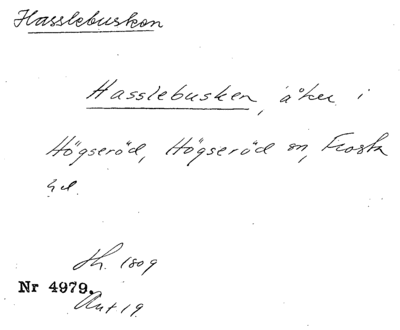 Hasslebuskon
Hasslebusken, åker i
Högseröd, Högseröd sn, Frosta
hd.
sk. 1809
Nr 4979.
Akt 19.